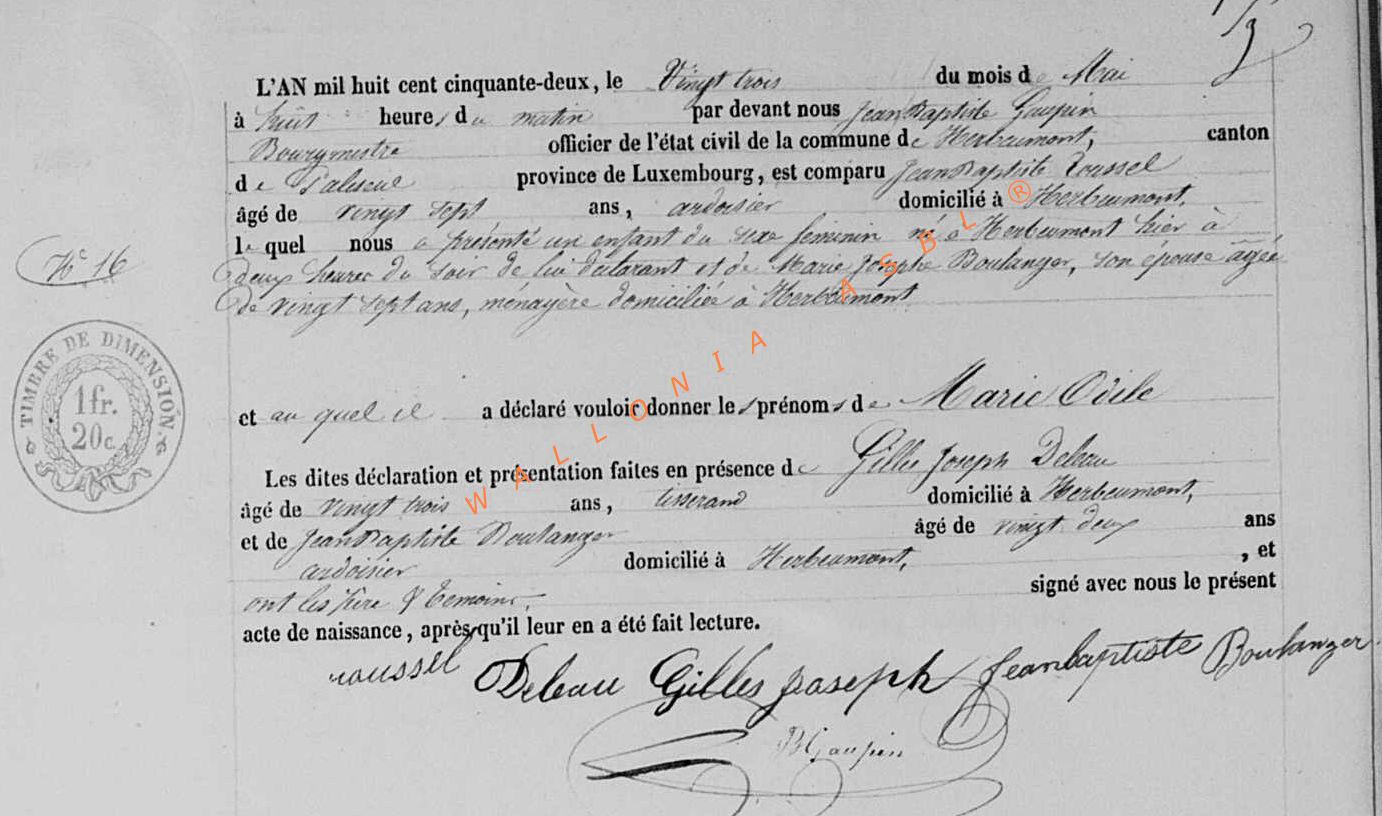 L'AN mil huit cent cinquante-deux, le Vingt trois du mois de Mai
à huit heures du matin par devant nous Jean Baptiste Gaupin
Bourgmestre officier de l'état civil de la commune de Herbeumont, canton
de Paliseul province de Luxembourg, est comparu Jean Baptiste Roussel
âgé de vingt sept ans, ardoisier domicilié à Herbeumont,
le quel nous a présenté un enfant du sexe feminin né à Herbeumont hier à
deux heures du soir de lui déclarant et de Marie Josephe Boulanger, son épouse âgée
de vingt sept ans, ménagère domiciliée à Herbeumont
N° 16
TIMBRE DE DIMENSION
1 fr.
20 c.
et au quel il a déclaré vouloir donner les prénoms de Marie Odile
Les dites déclaration et présentation faites en présence de Gilles Joseph Debeau
âgé de vingt trois ans, tisserand domicilié à Herbeumont,
et de Jean Baptiste Boulanger âgé de vingt deux ans
ardoisier domicilié à Herbeumont, , et
ont les père & témoins, signé avec nous le présent
acte de naissance, après qu'il leur en a été fait lecture.
roussel Debeau Gilles joseph Jeanbaptiste Boulanger
BGaupin
WALLONIA ASBL ®